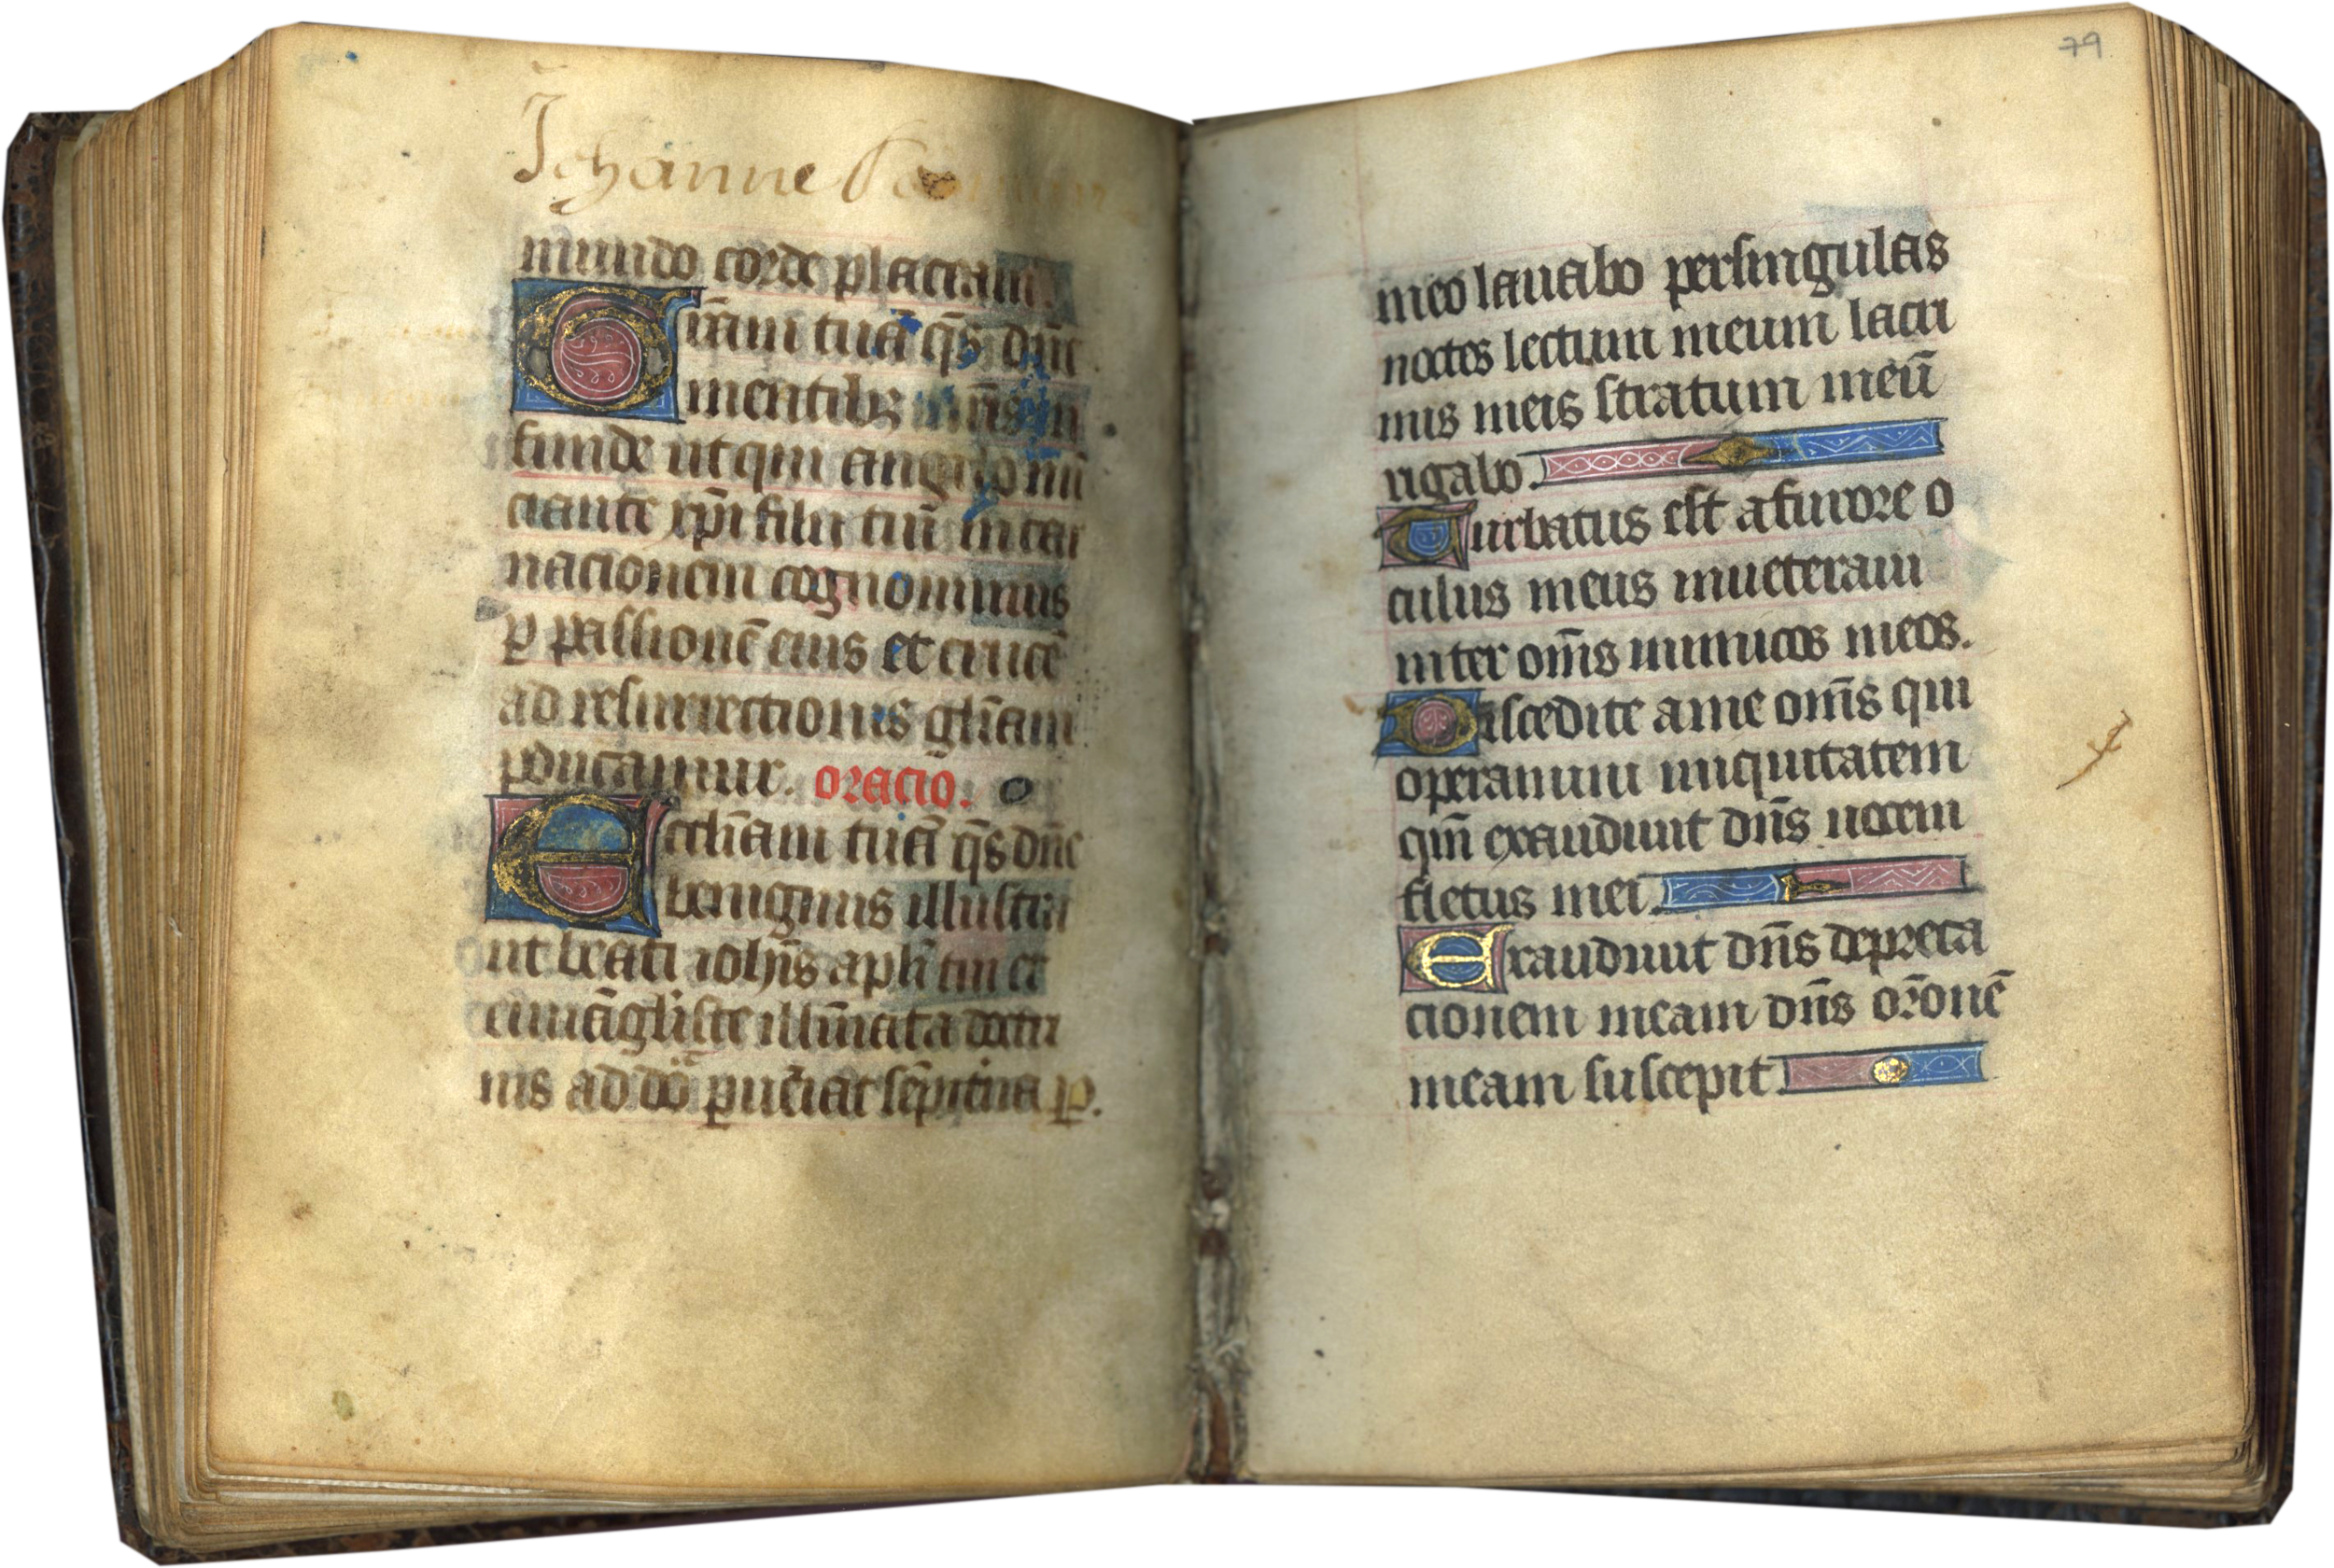 Johanne
mundo corde placeam.
Gram tuā q̄s dn̄e
mentibꝫ nr̄is in
funde ut qui angelo nū
ciante xp̄i filii tui īncar
nacionem cognouimus
ꝑ passionē eius et crucē
ad resurrectionis gl̄iam
ꝑducamur. oracio.
Eccl̄iam tuā q̄s dn̄e
benignus illustra
ut beati ioh̄is apl̄i tui et
euuāgliste illūinata doctri
nis ad do ꝑueniat sēpit̄na ꝑ.
79
meo lauabo persingulas
noctes lectum meum lacri
mis meis stratum meū
rigabo
Turbatus est afurore o
culus meus inueteraui
inter om̄s inimicos meos.
Discedite ame om̄s qui
operamini iniquitatem
qm̄ exaudiuit dn̄s uocem
fletus mei
Exaudiuit dn̄s depreca
cionem meam dn̄s or̄onē
meam suscepit